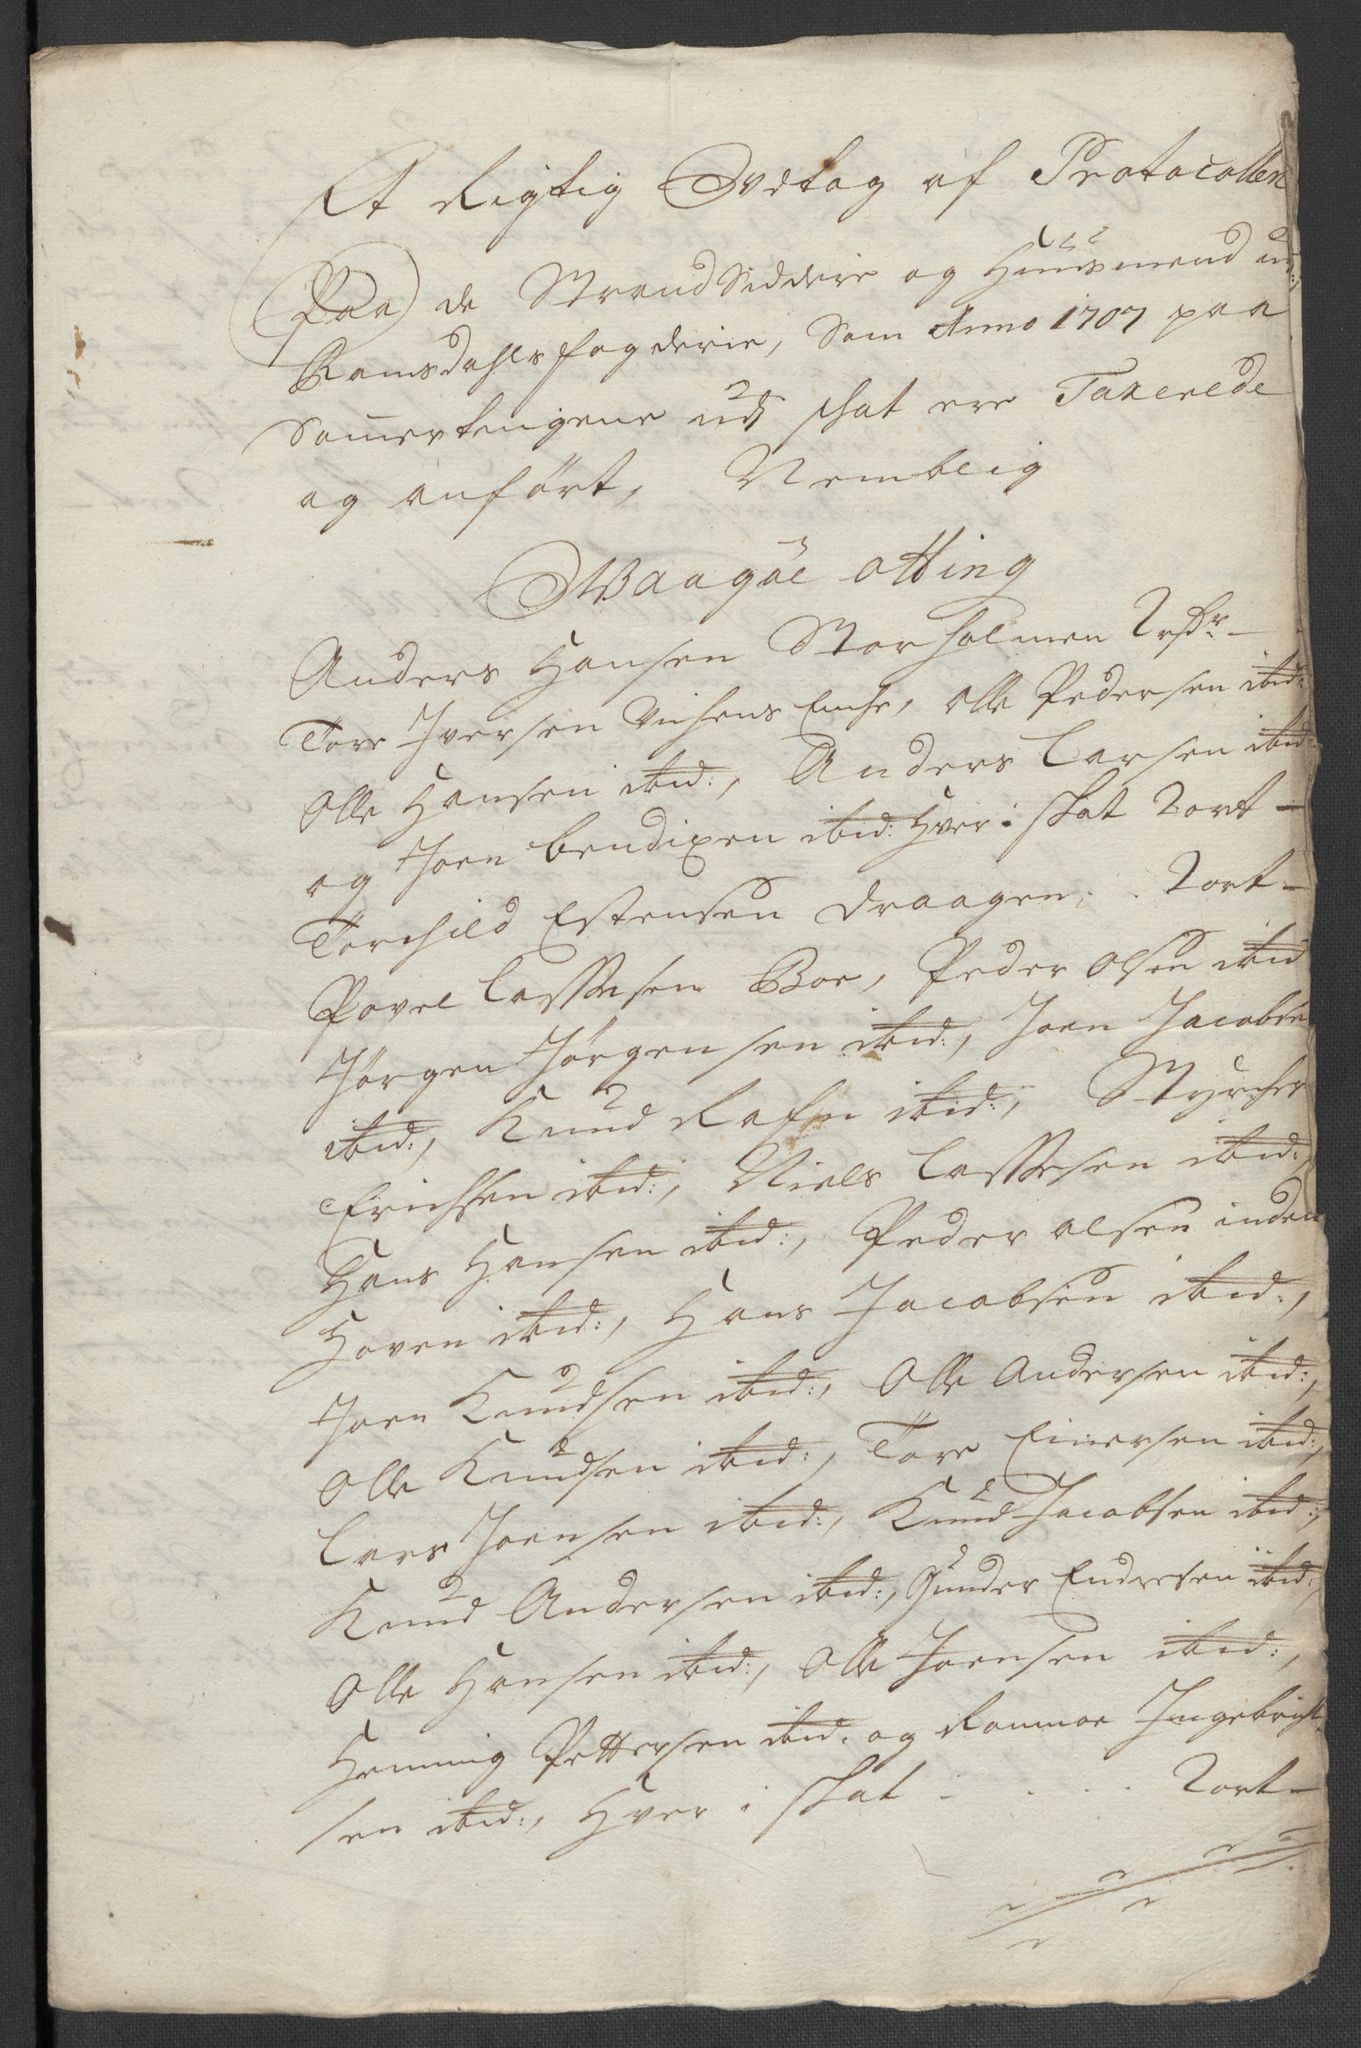 Et Rigtig Udtog af Protocollen
Paa de Strandsiddere og Huusmend udj
Romsdahls fogderie, Som Anno 1707 paa
Somertingene udj skat ere Taxerede
og anført, Nemblig
Waagøe otting
Anders Hansen Storholmen
Tore Iversen Vichens Enche, Olle Pedersen ibid:
Olle Hansen ibid:, Anders Larsen ibid
og Joen bendixen ibid: Hver i skat 2 ort –
Torchild Estensen Draagen, . 2 ort –
Povel Lassesen Boe, Peder Olsen ibid
Jørgen Jørgensen ibid:, Joen Jacobsen
ibid:, Knud Rafn ibid:, Styrcher
Erichsen ibid:, Niels Lassesen ibid:,
Hans Hansen ibid:, Peder Olsen inden
Haven ibid:, Hans Jacobsen ibid:,
Joen Knudsen ibid:, Olle Andersen ibid:,
Olle Knudsen ibid:, Tore Einersen ibid:,
Lars Joensen ibid:, Knud Jacobsen ibid:,
Knud Andersen ibid:, Gunder Endresen ibid:,
Olle Hansen ibid:, Olle Joensen ibid:,
Hemmig Pettersen ibid: og Rasmoe Ingebrigt
sen ibid:, Hver i skat . . . 2 ort –